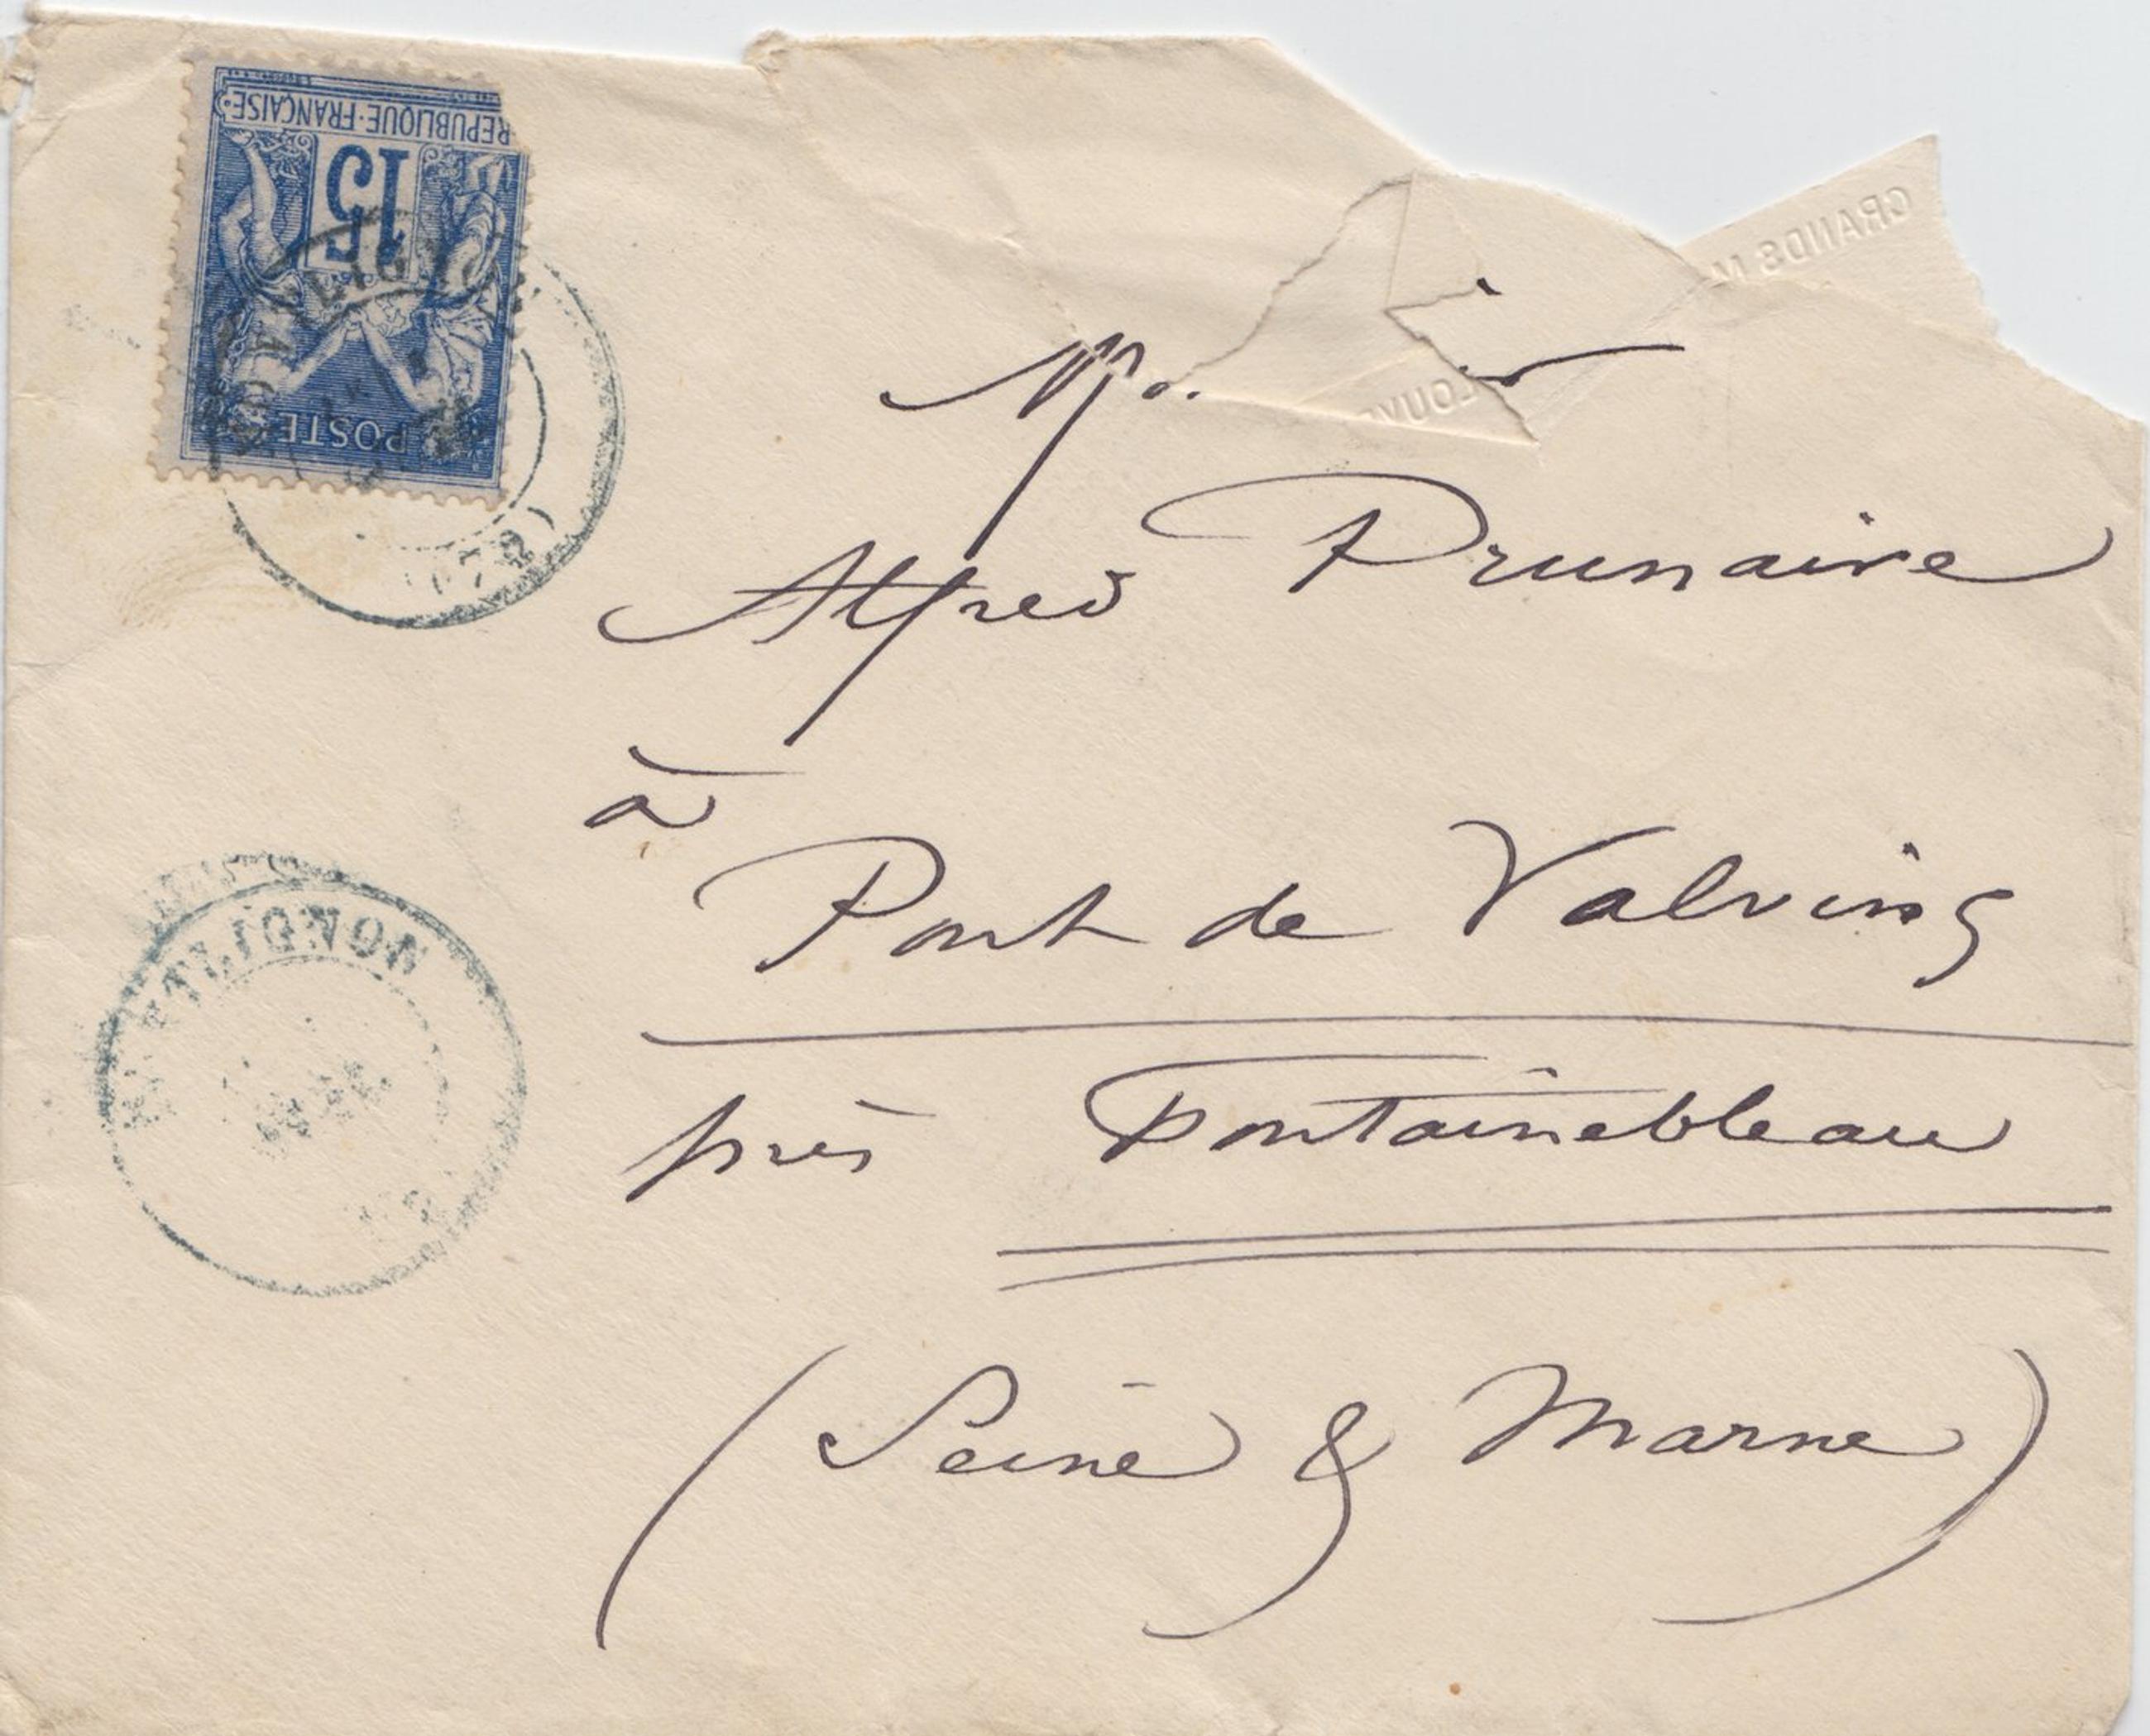 REPUBLIQUE·FRANÇAISE
15
POSTE
(72)
GRANDS M
LOUV
Alfred Prunaire
à
Pont de Valvins
près Fontainebleau
(Seine & Marne)
MONTLIGNON